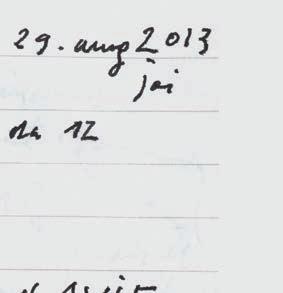 29. aug 2013
joi
ora 12